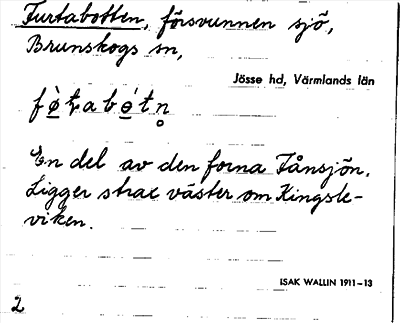 Furtabotten, försvunnen sjö,
Brunskogs sn,
Jösse hd, Värmlands län
En del av den forna Fånsjön.
Ligger strax väster om Kingsle-
viken.
ISAK WALLIN 1911–13
2